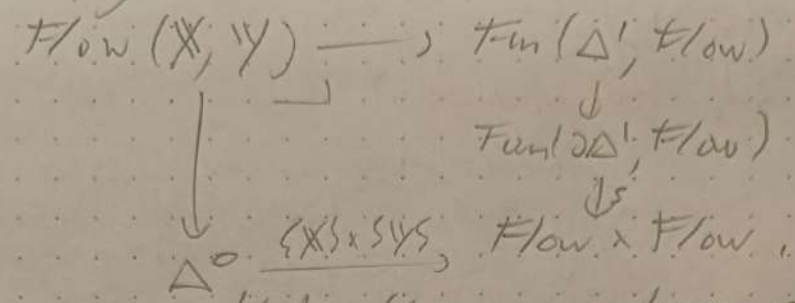 Flow (𝕏, 𝕐) ⟶ Fun (Δ¹, Flow)
⌟
↓ ↓
Fun(∂Δ¹, Flow)
↓s
Δ⁰ {𝕏}×{𝕐} ⟶ Flow × Flow .